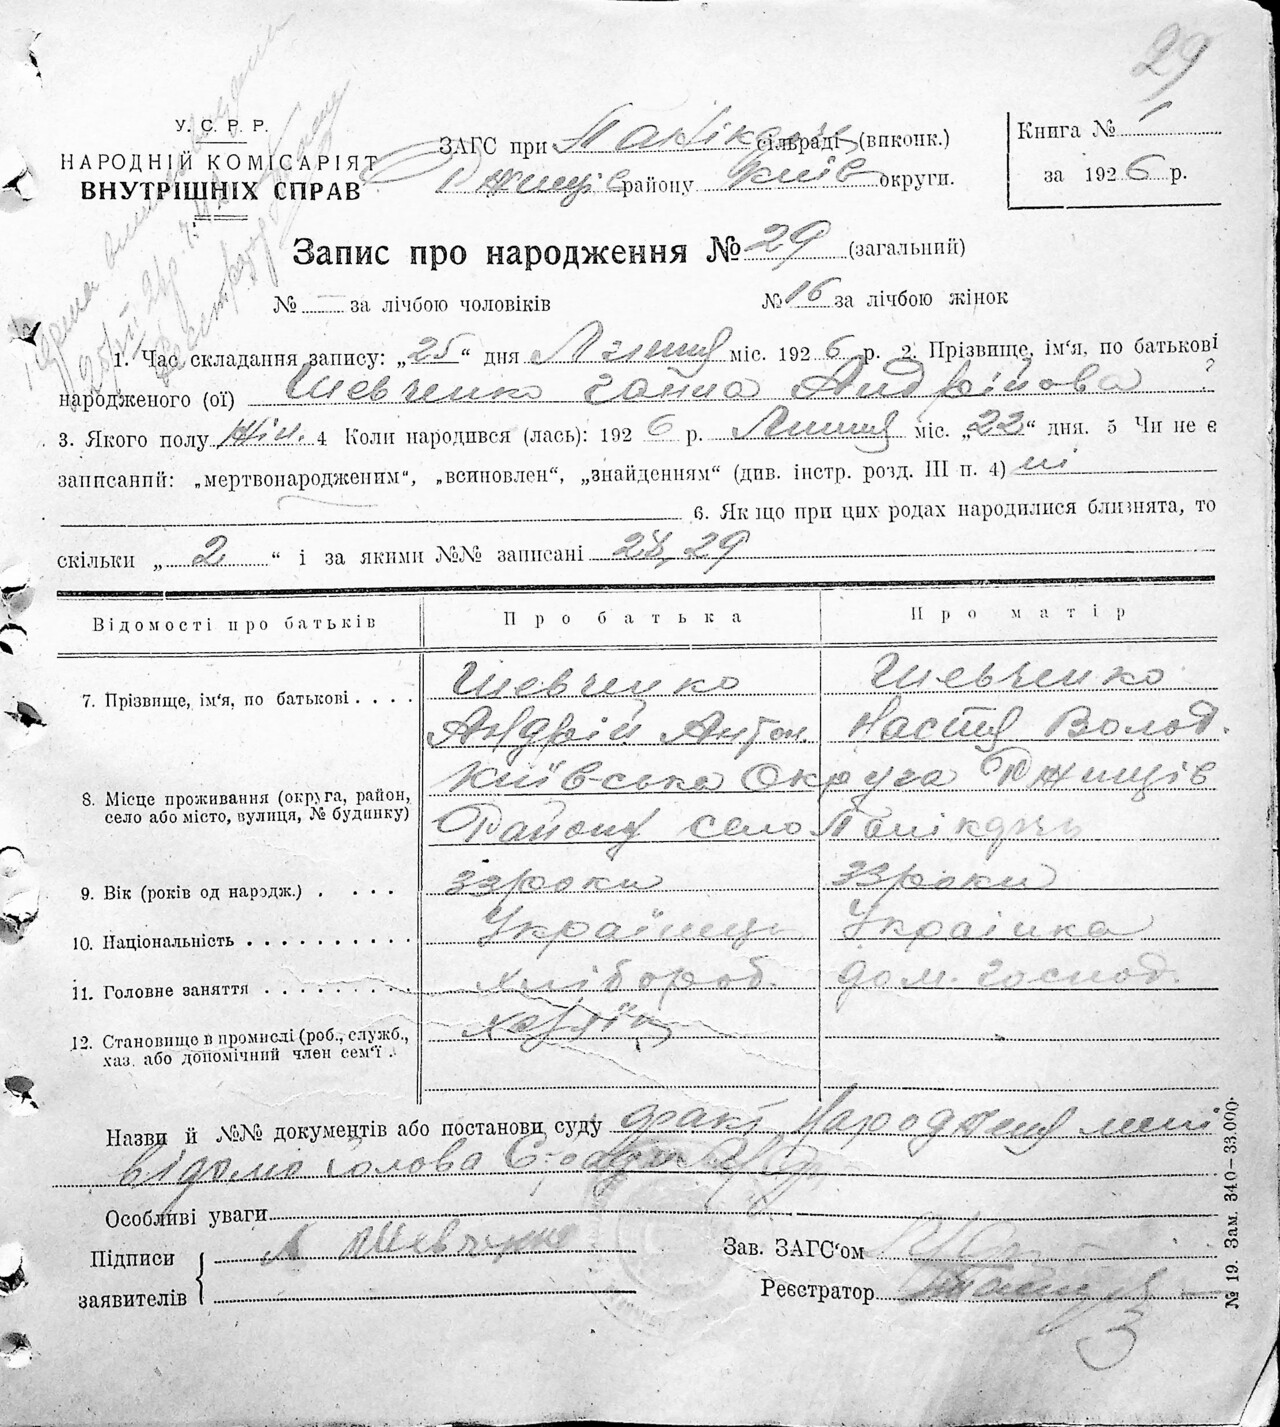 29
У. С. Р. Р.
НАРОДНІЙ КОМІСАРІЯТ
ВНУТРІШНІХ СПРАВ
ЗАГС при Панікарч сільраді (виконк.)
Ржищів району Київ округи.
Книга № 1
за 1926 р.
Запис про народження № 29 (загальний)
№ — за лічбою чоловіків № 16 за лічбою жінок
1. Час складання запису: „25“ дня Липня міс. 1926 р. 2. Прізвище, ім'я, по батькові
народженого (ої) Шевченко Ганна Андрійова ?
3. Якого полу жін. 4 Коли народився (лась): 1926 р. Липня міс. „22“ дня. 5 Чи не є
записаний: „мертвонародженим“, „всиновлен“, „знайденням“ (див. інстр. розд. III п. 4) ні
6. Якщо при цих родах народилися близнята, то
скільки „2“ і за якими №№ записані 28, 29
Відомості про батьків Про батька Про матір
7. Прізвище, ім'я, по батькові . . . . Шевченко Шевченко
Андрій Антон. Настя Волод.
8. Місце проживання (округа, район, село або місто, вулиця, № будинку) Київська Округа Ржищів
Району село
9. Вік (років од народж.) . . . . 33 роки 33 роки
10. Національність . . . . . . . . . . Українець Українка
11. Головне заняття . . . . . . . . Хлібороб. дом. господ.
12. Становище в промислі (роб., служб., хаз. або допомічний член сем'ї . Хазяїн
Назви й №№ документів або постанови суду факт Народження мені
відомо голова С-ради
Особливі уваги
Підписи
заявителів
А Шевченко
Зав. ЗАГС'ом
Реєстратор
3
№ 19. Зам. 340—33.000.